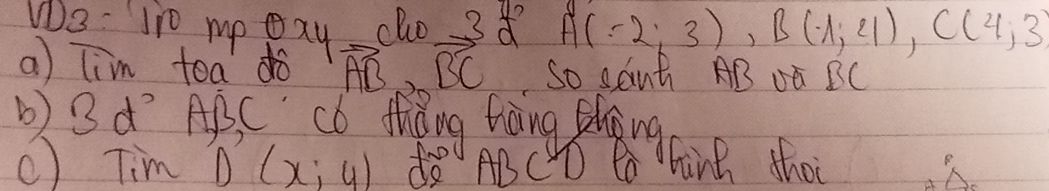 VD3: Tro mp Oxy cho 3 đ² A(-2; 3), B(-1; 21), C(4; 3)
a) Tìm tọa độ AB, BC so sánh AB và BC
b) 3 đ² A,B,C có thẳng hàng không
c) Tìm D (x; y) để ABCD là hình thoi